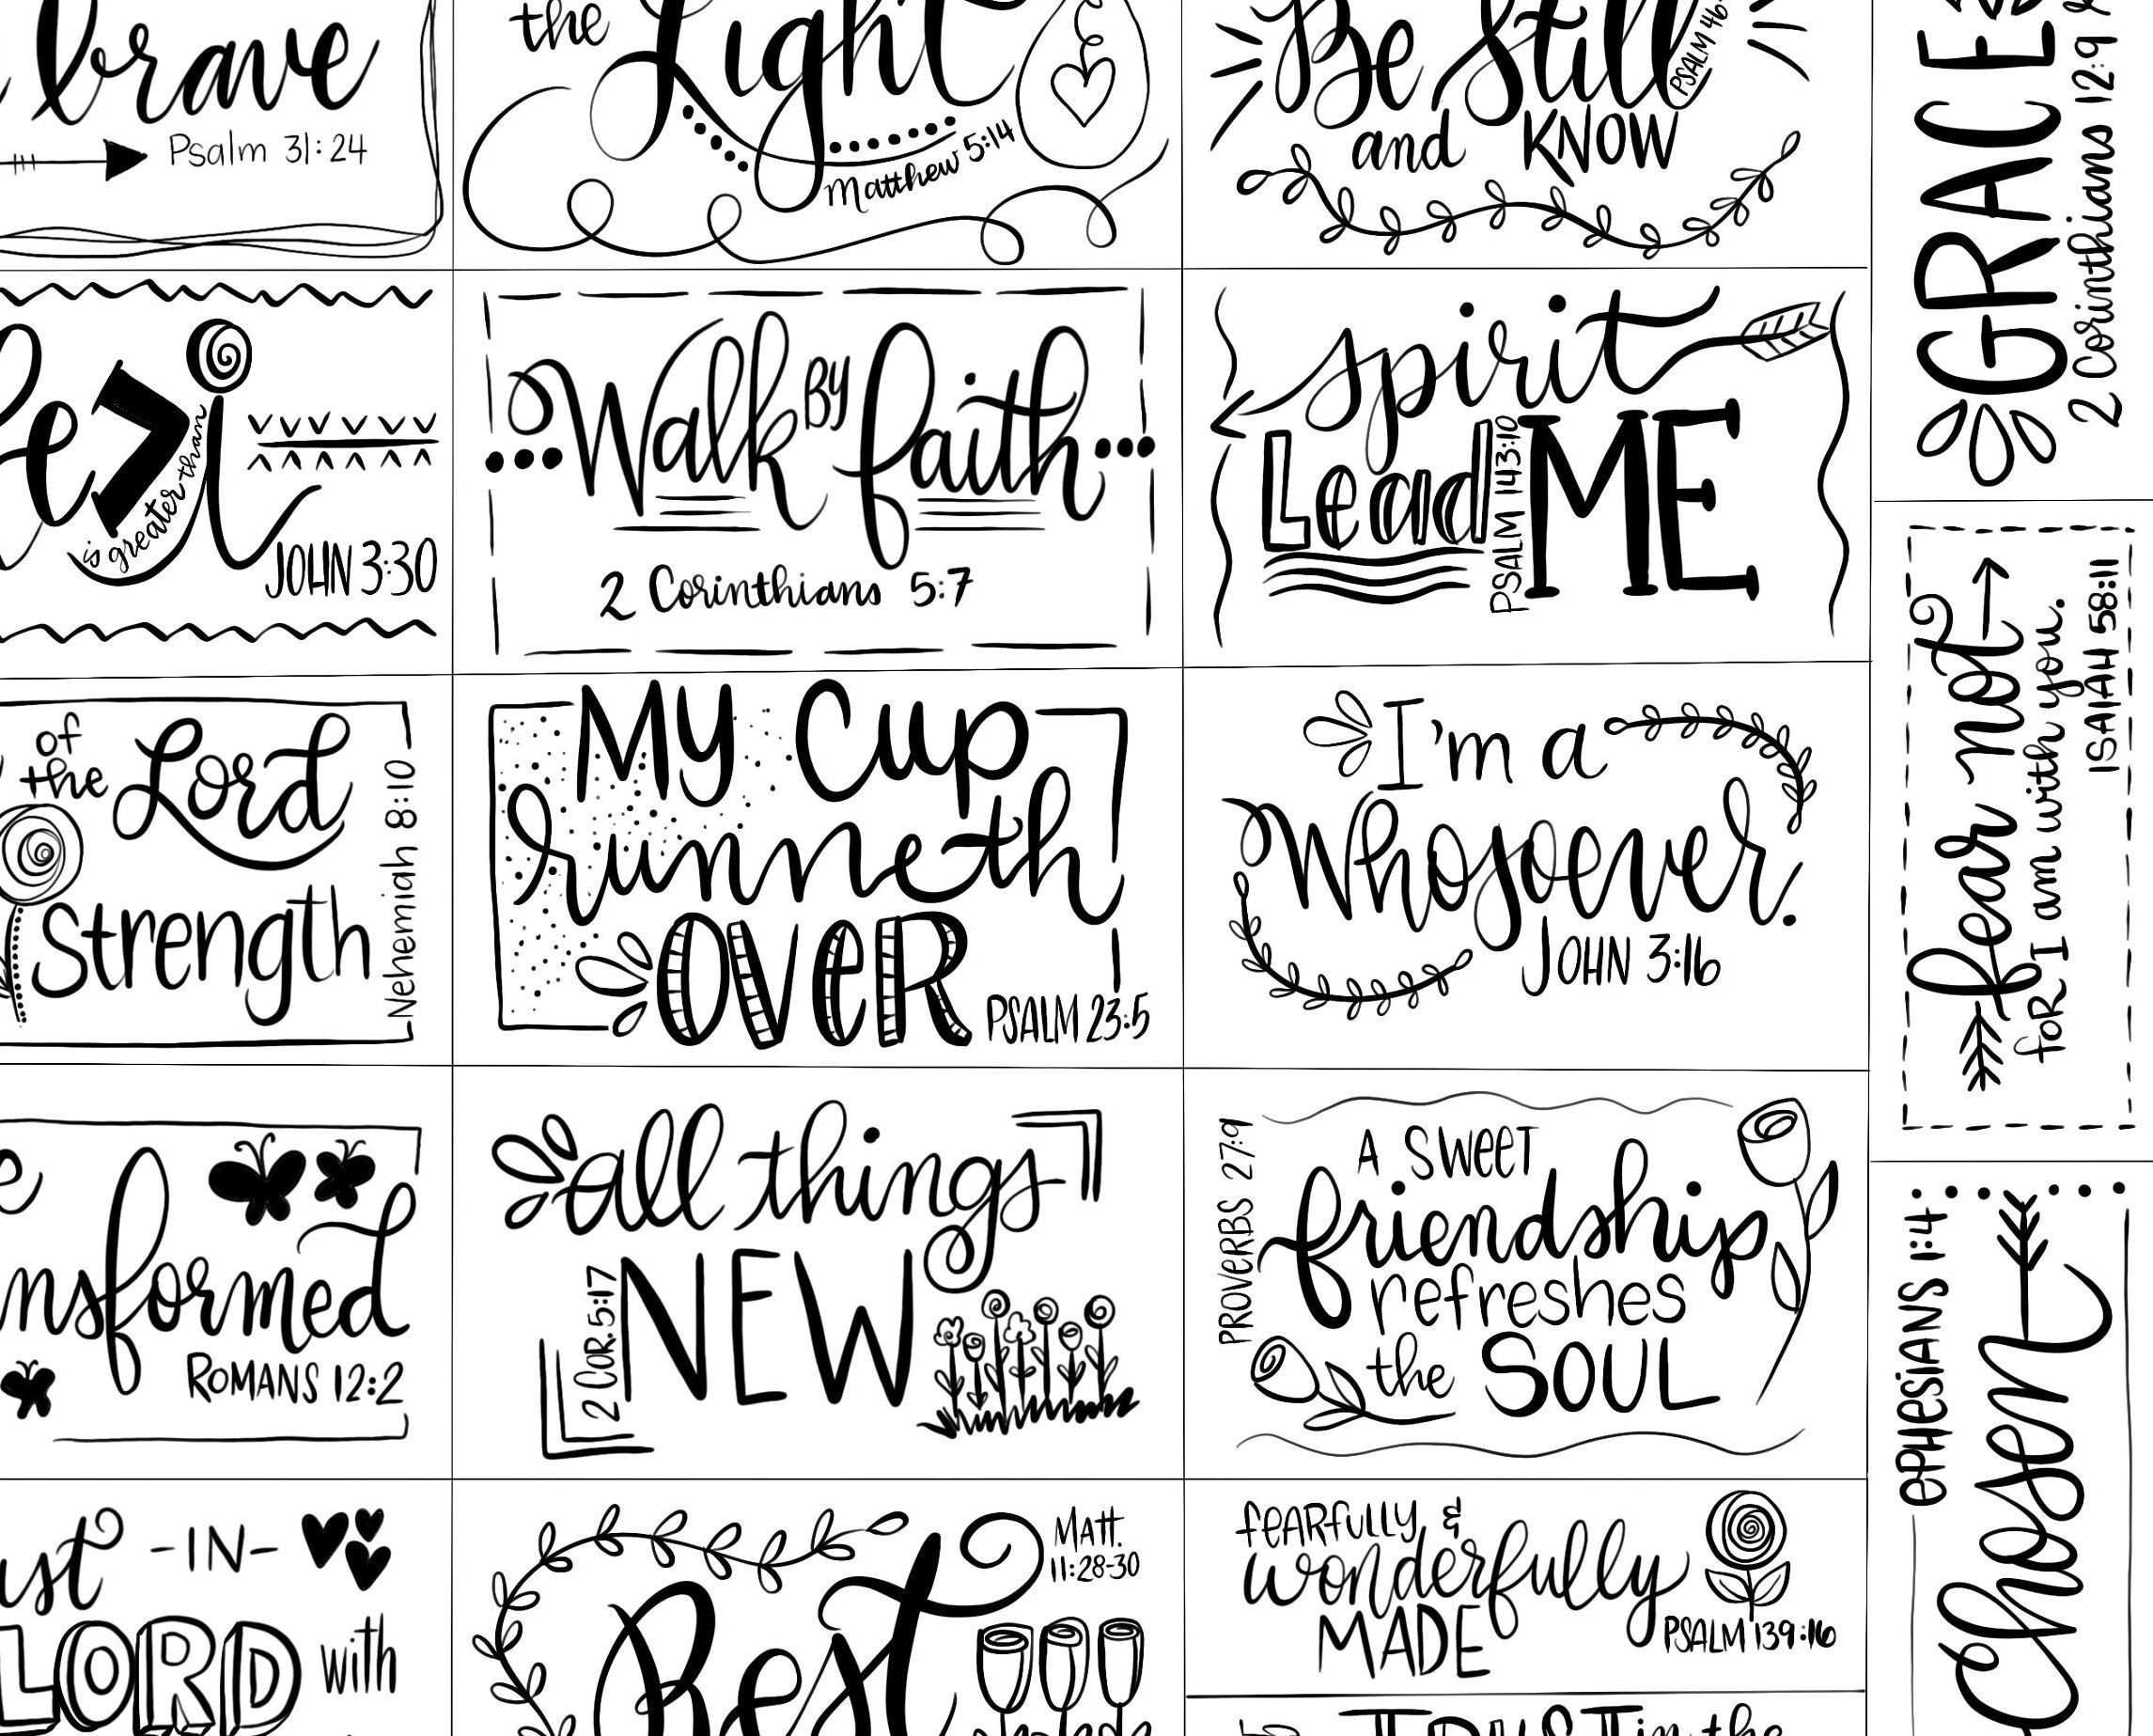 brave
Psalm 31:24
the
Light
Matthew 5:14
Be Still
PSALM 46:
and KNOW
GRACE
2 Corinthians 12:9
is greater than
i
JOHN 3:30
Walk BY faith
2 Corinthians 5:7
spirit
Lead ME
PSALM 143:10
fear not
foR I am with you.
ISAIAH 58:11
of
the Lord
Strength
Nehemiah 8:10
My Cup
runneth
OVER
PSALM 23:5
I'm a
Whosoever.
JOHN 3:16
nsformed
ROMANS 12:2
all things
NEW
2 COR. 5:17
PROVERBS 27:9
A SWEET
friendship
refreshes
the SOUL
EPHESIANS 1:4
Chosen
ust -IN-
LORD with
Matt.
11:28-30
Rest
feARfully &
wonderfully
MADE
PSALM 139:16
TRUST in the